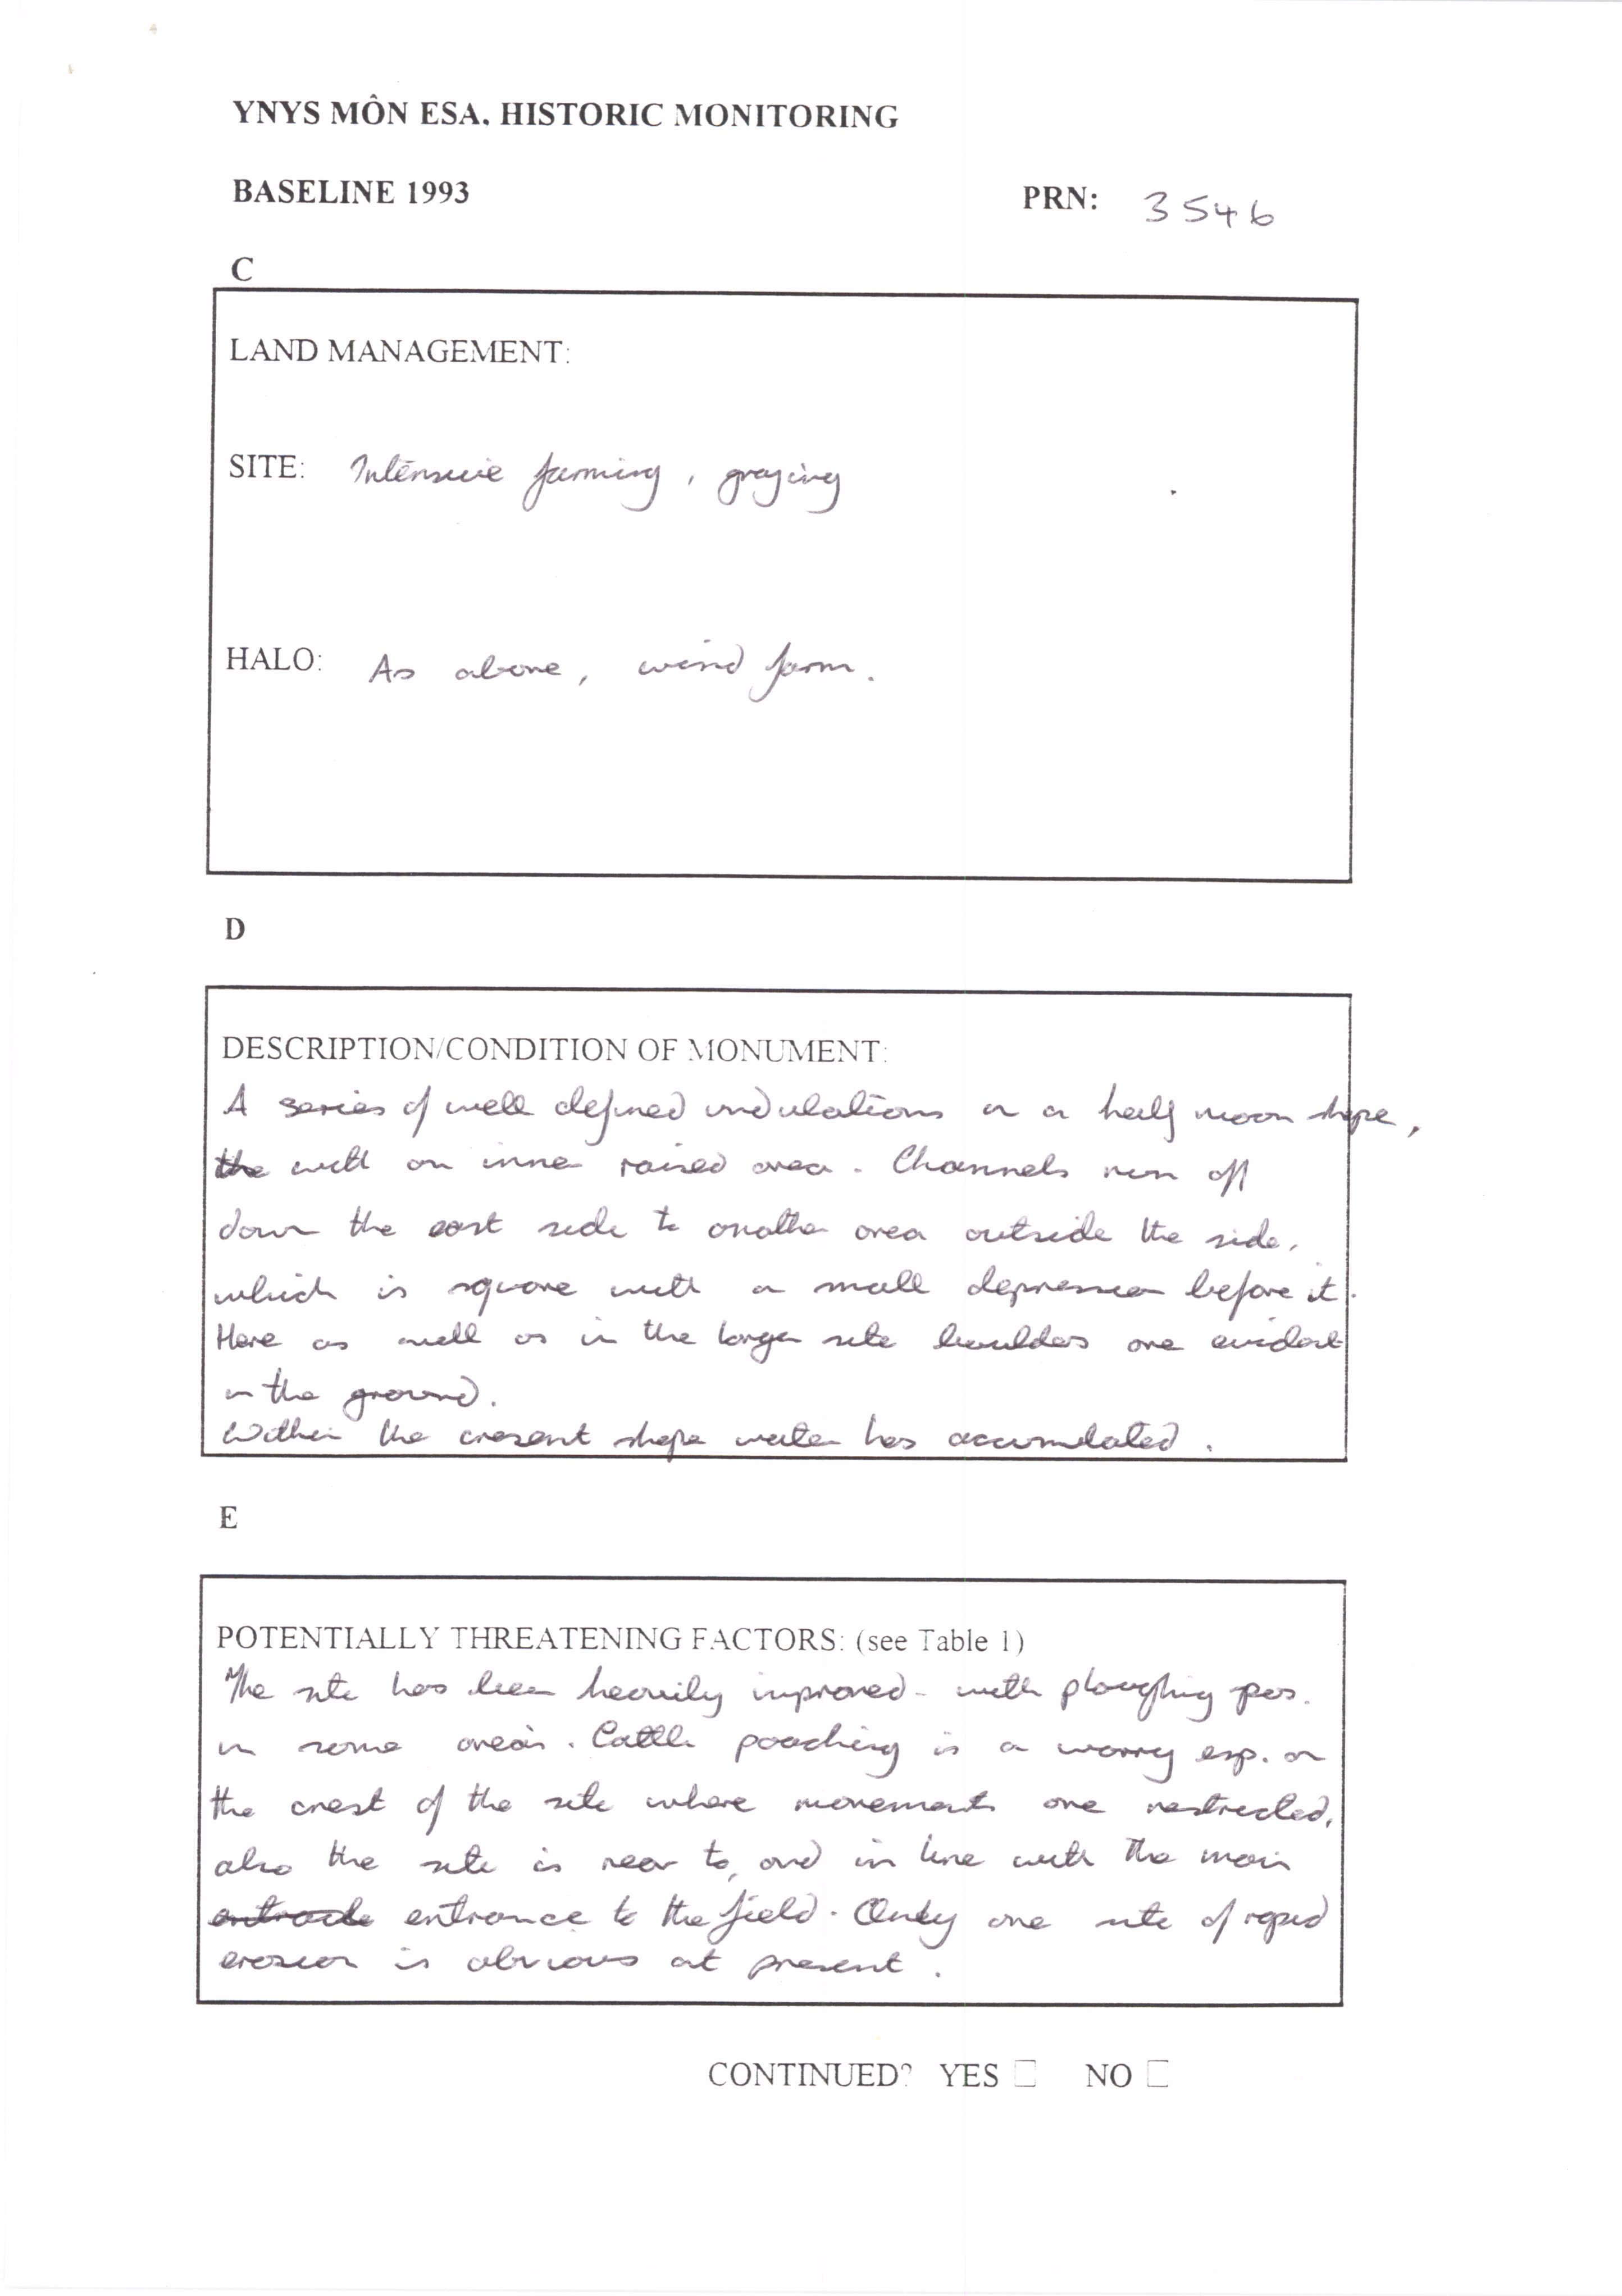 YNYS MÔN ESA. HISTORIC MONITORING
BASELINE 1993
PRN: 3546
C
LAND MANAGEMENT:
SITE: Intensive farming, grazing
HALO: As above, wind farm.
D
DESCRIPTION/CONDITION OF MONUMENT:
A series of well defined undulations in a half moon shape,
the with an inner raised area. Channels run off
down the east side to another area outside the side,
which is square with a small depression before it.
Here as well as in the larger site boulders are evident
in the ground.
Within the cresent shape water has accumulated.
E
POTENTIALLY THREATENING FACTORS: (see Table 1)
The site has been heavily improved - with ploughing pos.
in some areas. Cattle poaching is a worry esp. on
the crest of the site where movements are restricted,
also the site is near to, and in line with the main
entrance to the field. Only one site of rapid
erosion is obvious at present.
CONTINUED? YES NO